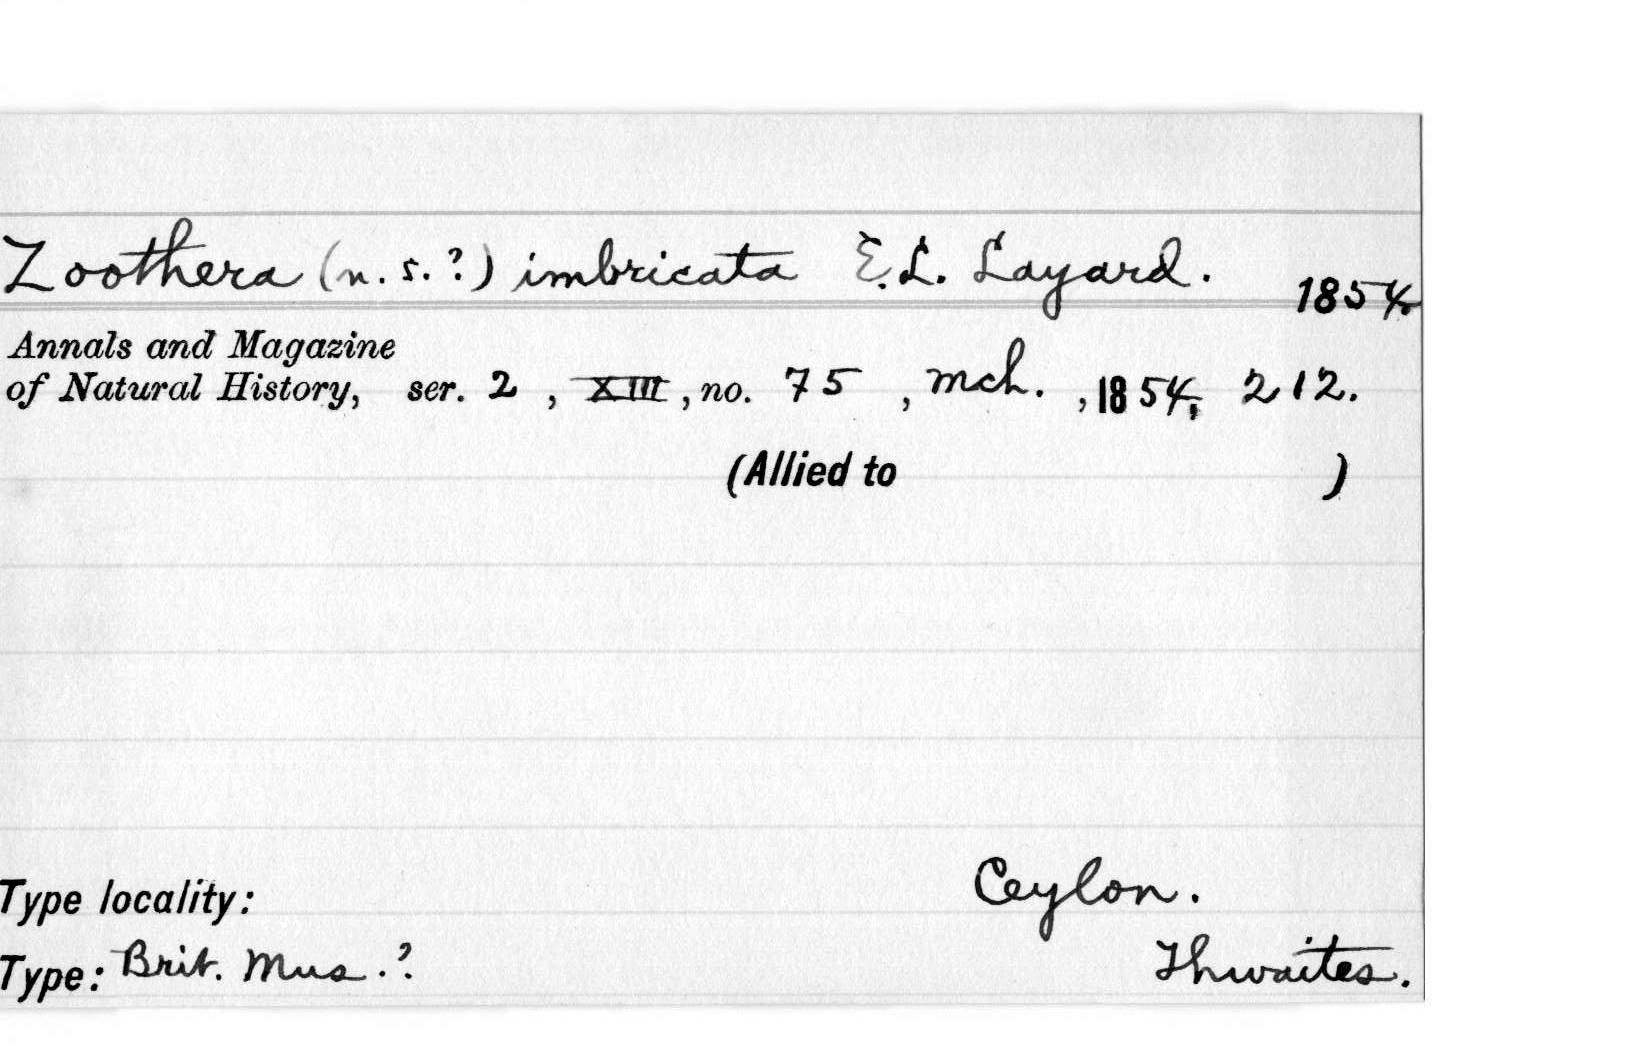 Zoothera (n. s. ?) imbricata E. L. Layard. 1854
Annals and Magazine
of Natural History, ser. 2, XIII, no. 75, Mch., 1854, 212.
(Allied to )
Type locality: Ceylon.
Type: Brit. Mus.? Thwaites.